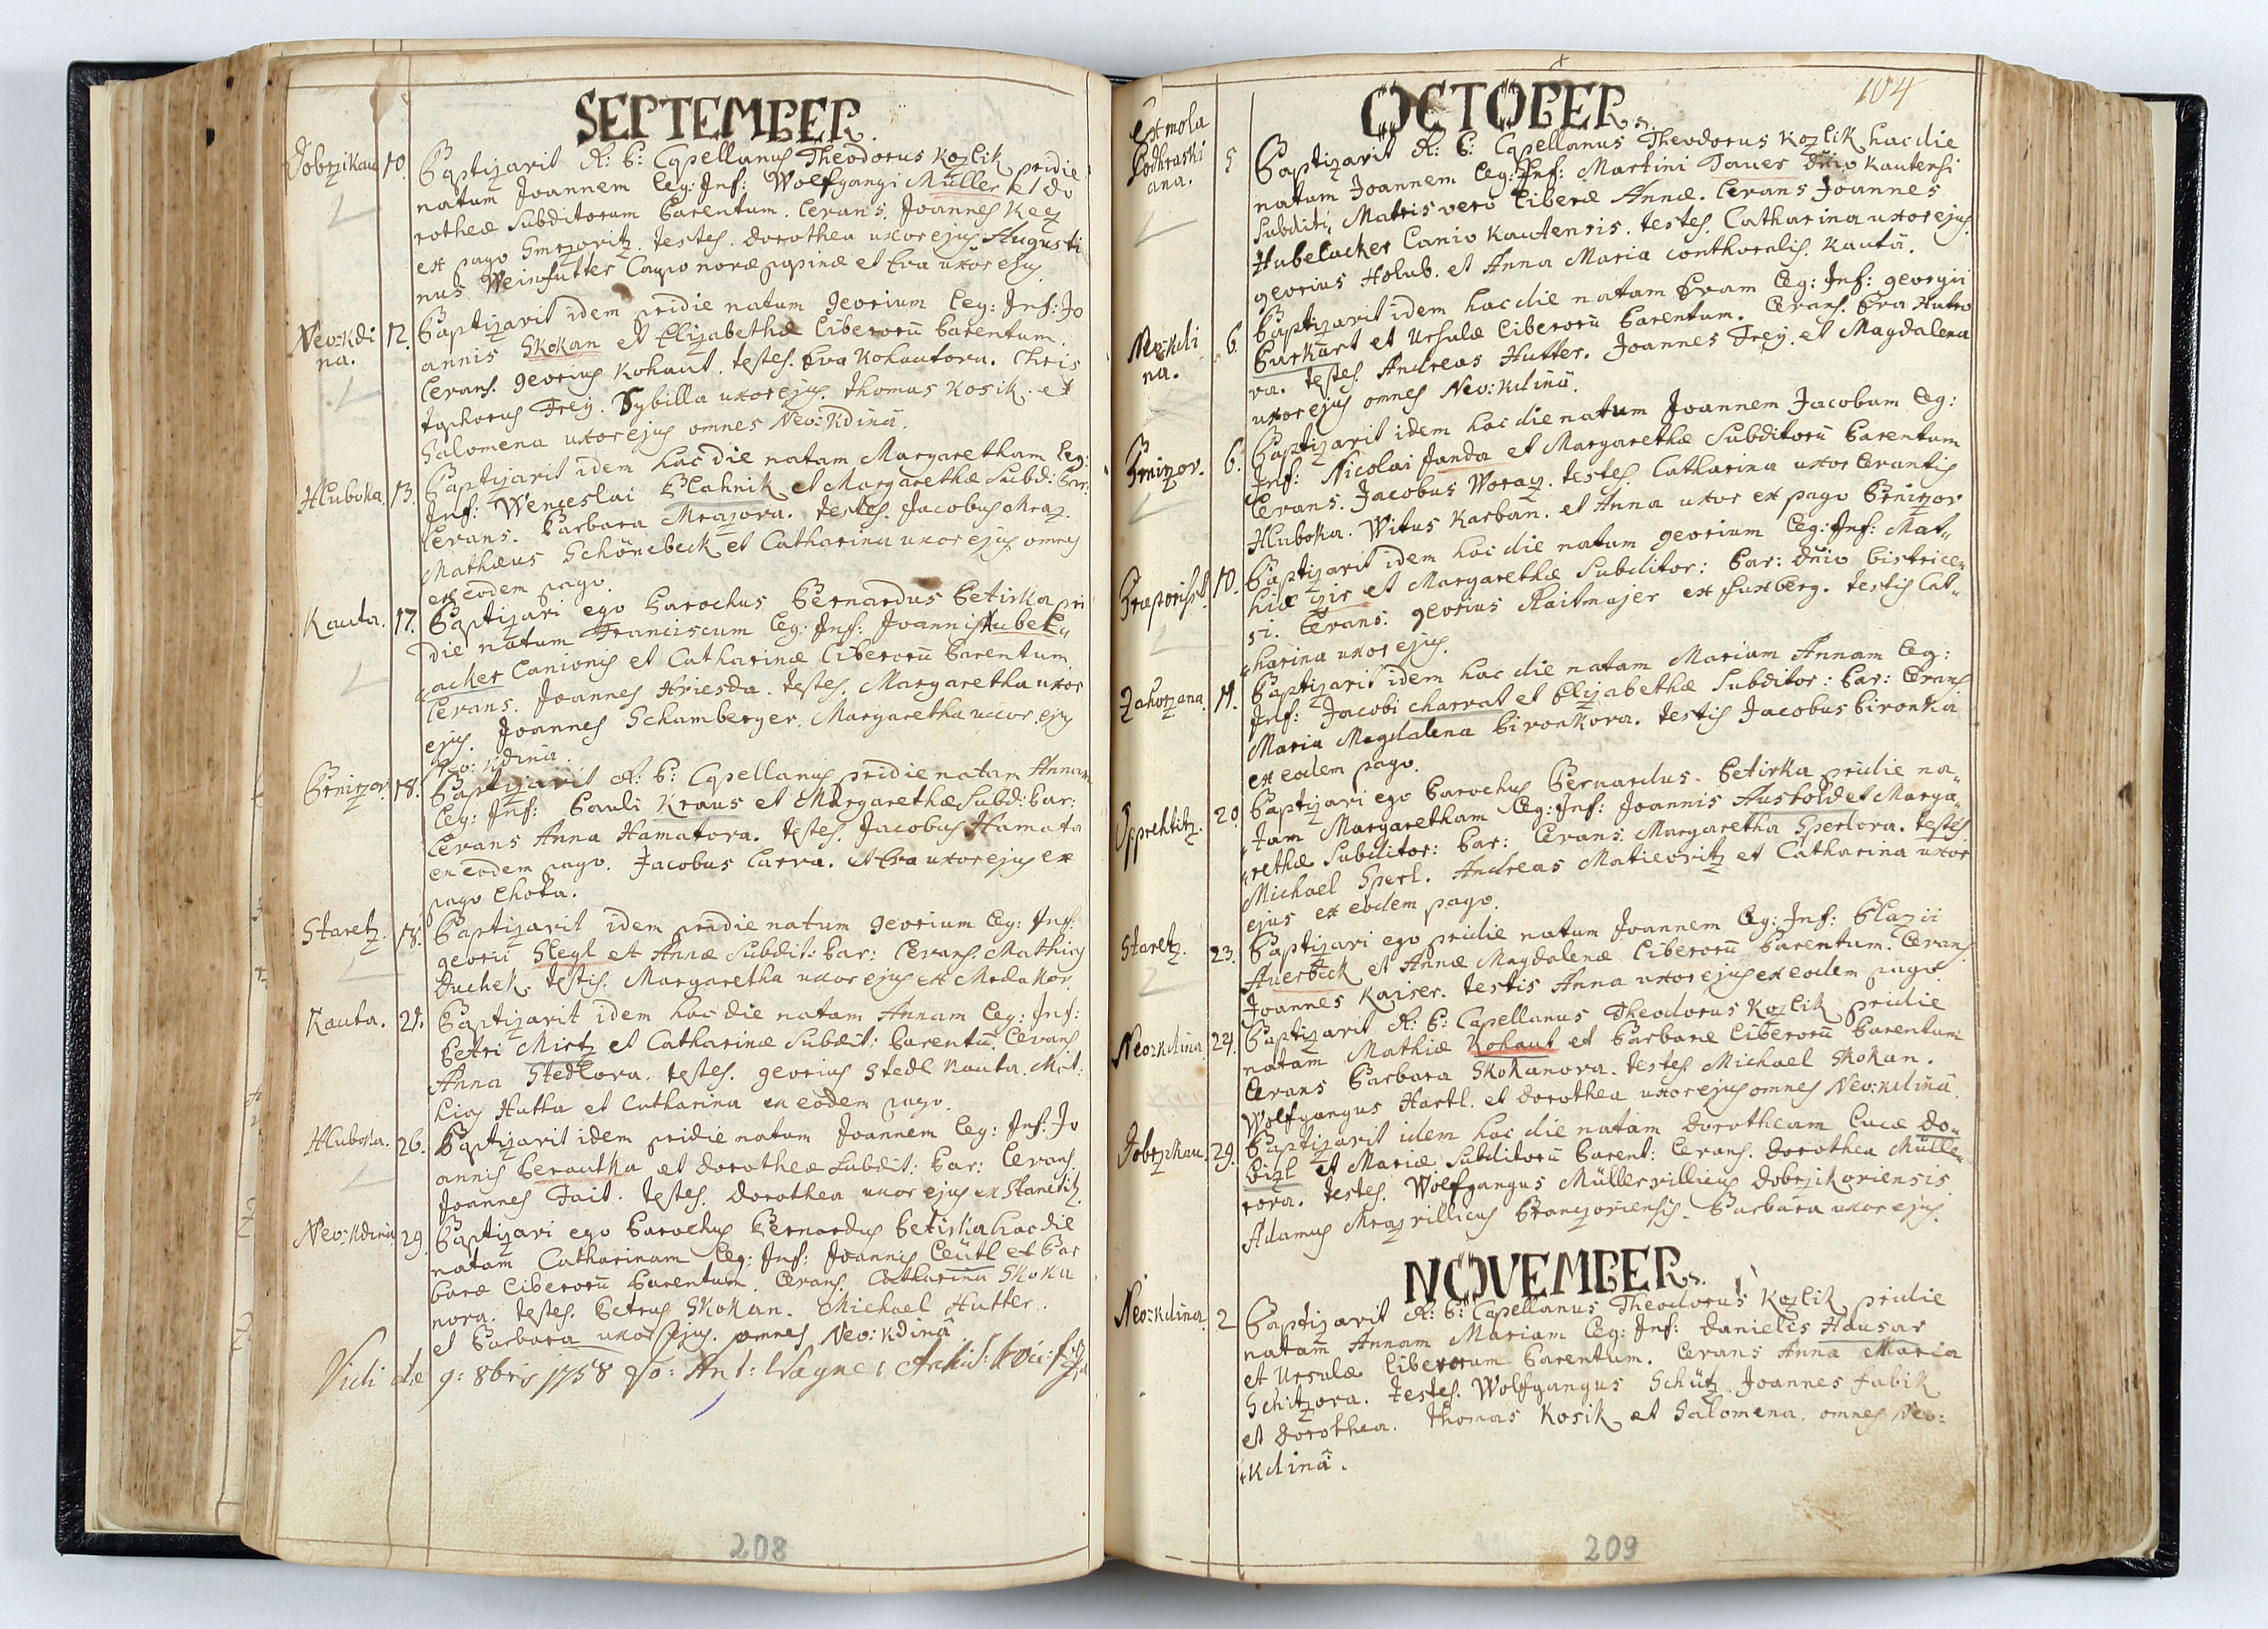 SEPTEMBER.
Dobrzikau 10. Baptizavit A: P: Capellanus Theodorus Kozlik pridie
natum Joannem leg: Inf: Wolfgangi Müller et Do
rotheæ Subditorum Parentum. Levans. Joannes Keez
ex pago Smrzovitz. testes. Dorothea uxor ejus Augusti
nus Weinfutter Caupo novæ popinæ et Eva uxor ejus.
Neo:Kdi 12. Baptizavit idem pridie natum Georium leg: Inf: Jo
na. annis Skokan et Elizabethæ liberorū Parentum.
Levans. Georius Kohaut. testes. Eva Kohautova. Chris
tophorus Frey. Sybilla uxor ejus. Thomas Kosik. et
Salomena uxor ejus omnes Neo:Kdinâ.
Hluboka. 13. Baptizavit idem hac die natam Margaretham leg:
Inf: Wenceslai Blahnik et Margarethæ Subdi: Par:
Levans. Barbara Mrazova. testes. Jacobus Mraz.
Mathæus Schönebeck et Catharina uxor ejus omnes
ex eodem pago.
Kauta. 17. Baptizavi ego Parochus Bernardus Petirka pri
die natum Franciscum leg: Inf: Joannis Hubel„
„acker Canionis et Catharinæ liberorū Parentum.
Levans. Joannes Hriesda. testes. Margaretha uxor
ejus. Joannes Schamberger. Margaretha uxor ejus
Neo:Kdinâ.
Brnirzov. 18. Baptizavit A: P: Capellanus pridie natam Annam
leg: Inf: Pauli Kraus et Margarethæ Subdi: Par:
Levans Anna Hamatova. testes. Jacobus Hamata
ex eodem pago. Jacobus Carva. et Eva uxor ejus ex
pago Lhota.
Staretz. 18. Baptizavit idem pridie natum Georium leg: Inf:
Georii Slegl et Annæ Subdit: Par: Levans. Mathias
Duchek. testis. Margaretha uxor ejus ex Mrdakov.
Kauta. 21. Baptizavit idem hac die natam Annam leg: Inf:
Petri Mirtz et Catharinæ Subdit: Parentū. Levans
Anna Stedlova. testes. Georius Stedl Kauta. Mat:
hias Hutta et Catharina ex eodem pago.
Hluboka. 26. Baptizavit idem pridie natum Joannem leg: Inf: Jo
annis Berautka et Dorotheæ Subdit: Par: Levans.
Joannes Tait. testes. Dorothea uxor ejus ex Stanetitz.
Neo:Kdina 29. Baptizavi ego Parochus Bernardus Petirka hac die
natam Catharinam leg: Inf: Joannis Leütl et Bar
baræ liberorū Parentum. Levans. Catharina Skoka
nova. testes. Petrus Skokan. Michael Hutter.
et Barbara uxor ejus. omnes Neo:Kdinâ.
Vidi die 9: 8bris 1758 Jo: Ant: Wagner
208
104
OCTOBER.
Ex mola 5 Baptizavit A: P: Capellanus Theodorus Kozlik hac die
Podhraski natum Joannem leg: Inf: Martini Tauer Dñio Kautensi
ana. Subditi, Matris vero liberæ Annæ. Levans Joannes
Hubelacker Canio Kautensis. testes. Catharina uxor ejus.
Georius Holub. et Anna Maria conthoralis. Kautâ.
Neo:Kdi 6. Baptizavit idem hac die natam Evam leg: Inf: Georgii
na. Burkart et Ursulæ liberorū Parentum. Levans. Eva Hutto
va. testes. Andreas Hutter. Joannes Frey. et Magdalena
uxor ejus omnes Neo:Kdinâ.
Brnirzov. 6. Baptizavit idem hac die natum Joannem Jacobum leg:
Inf: Nicolai Janda et Margarethæ Subditorū Parentum
Levans. Jacobus Woraz. testes. Catharina uxor Levantis
Hluboka. Witus Karban. et Anna uxor ex pago Brnirzov
Praporisst. 10. Baptizavit idem hac die natum Georium leg: Inf: Mat„
hiæ Zir et Margarethæ Subditor: Par: Dñio Bistricen
si. Levans. Georius Raitmajer ex Fuxberg. testis Cat„
„harina uxor ejus.
Zahorzana. 11. Baptizavit idem hac die natam Mariam Annam leg:
Inf: Jacobi Charvat et Elizabethæ Subditor: Par: Levans
Maria Magdalena Bironkova. testis Jacobus Bironka
ex eodem pago.
Opprchtitz. 20. Baptizavi ego Parochus Bernardus Petirka pridie na„
„tam Margaretham leg: Inf: Joannis Ausbold et Marga„
„rethæ Subditor: Par: Levans. Margaretha Sperlova. testes
Michael Sperl. Andreas Matieovitz et Catharina uxor
ejus ex eodem pago.
Staretz. 23. Baptizavi ego pridie natum Joannem leg: Inf: Blazii
Auerbeck et Annæ Magdalenæ liberorū Parentum. Levans.
Joannes Kaiser. testis Anna uxor ejus ex eodem pago
Neo:Kdina 24. Baptizavit A: P: Capellanus Theodorus Kozlik pridie
natam Mathiæ Kohaut et Barbaræ liberorū Parentum
Levans Barbara Skokanova. testes Michael Skokan.
Wolfgangus Hartl. et Dorothea uxor ejus omnes Neo:Kdinâ.
Dobrzkau. 29. Baptizavit idem hac die natam Dorotheam Lucæ Do„
bizl et Mariæ Subditorū Parent: Levans. Dorothea Mülle„
rova. testes. Wolfgangus Müller villicus Dobrzikoviensis
Adamus Mraz villicus Branczoviensis. Barbara uxor ejus.
NOVEMBER.
Neo:Kdina. 2 Baptizavit A: P: Capellanus Theodorus Kozlik pridie
natam Annam Mariam leg: Inf: Danielis Hausar
et Ursulæ liberorum Parentum. Levans Anna Maria
Schitzova. testes. Wolfgangus Schütz. Joannes Fabik
et Dorothea. Thomas Kosik et Salomena. omnes Neo:
„Kdinâ.
209